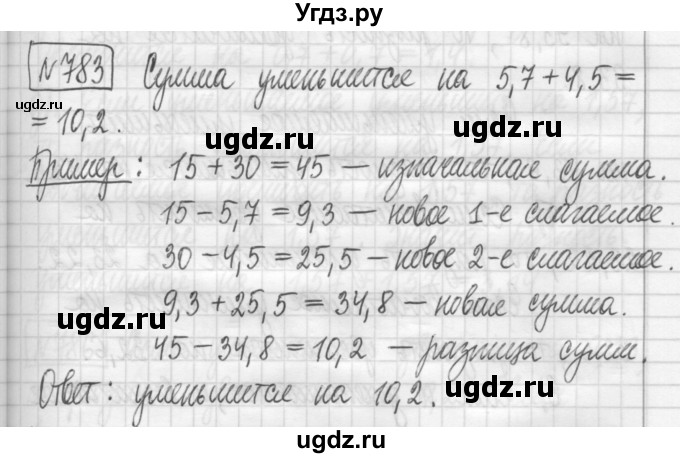 Угдз.ру
№783 Сумма уменьшится на 5,7+4,5=
ugdz.ru
ugdz.ru
= 10,2.
ugdz.ru
Пример: 15+30=45 — изначальная сумма.
15-5,7=9,3 — новое 1-е слагаемое.
30-4,5=25,5 — новое 2-е слагаемое.
ugdz.ru
ugdz.ru
9,3+25,5=34,8 — новая сумма.
ugdz.ru
45-34,8=10,2 — разница сумм.
Ответ: уменьшится на 10,2.
ugdz.ru
ugdz.ru